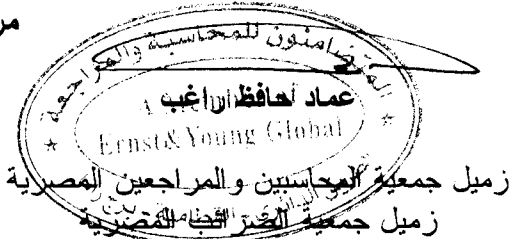 مر
المتضامنون للمحاسبة والمراجعة
عماد حافظ راغب
Ernst & Young Global
زميل جمعية المحاسبين والمراجعين المصرية
زميل جمعية الضرائب المصرية